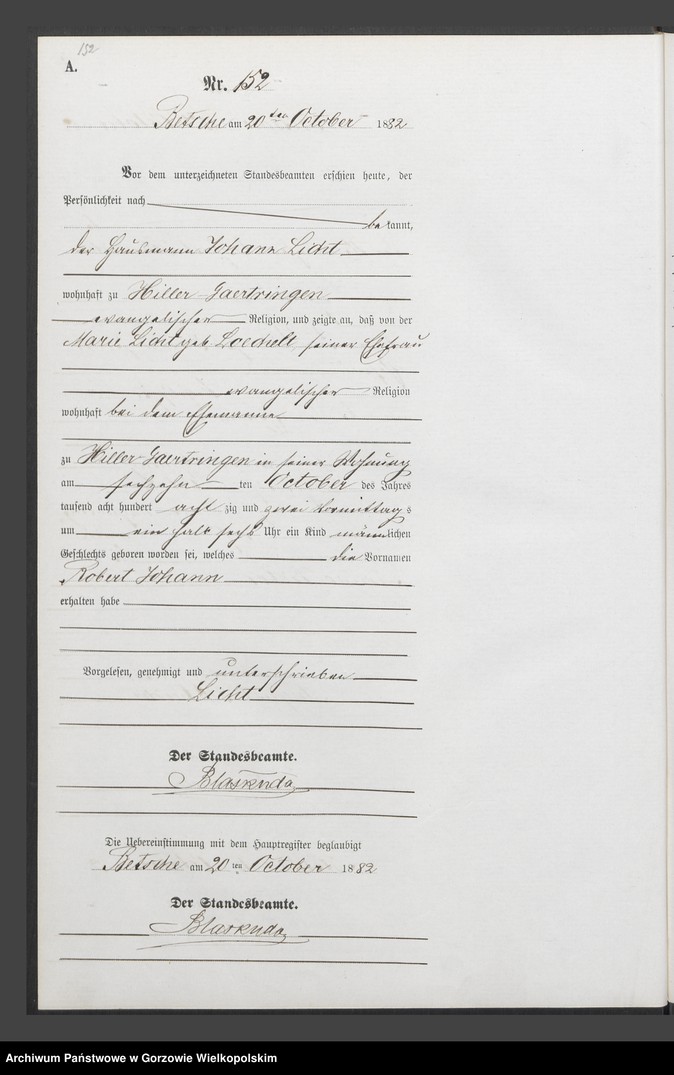 152
A.
Nr. 152
Betsche am 20 ten October 1882
Vor dem unterzeichneten Standesbeamten erschien heute, der
Persönlichkeit nach
be kannt,
der Hausmann Johann Licht
wohnhaft zu Hiller-Gaertringen
evangelischer Religion, und zeigte an, daß von der
Marie Licht geb. seiner Ehefrau
evangelischer Religion
wohnhaft bei dem Ehemanne
zu Hiller-Gaertringen in seiner Wohnung
am sechzehn ten October des Jahres
tausend acht hundert acht zig und zwei Vormittag s
um ein halb sechs Uhr ein Kind männlichen
Geschlechts geboren worden sei, welches die Vornamen
Robert Johann
erhalten habe
Vorgelesen, genehmigt und unterschrieben
Licht
Der Standesbeamte.
Blaskuda
Die Uebereinstimmung mit dem Hauptregister beglaubigt
Betsche am 20 ten October 1882
Der Standesbeamte.
Blaskuda
Archiwum Państwowe w Gorzowie Wielkopolskim